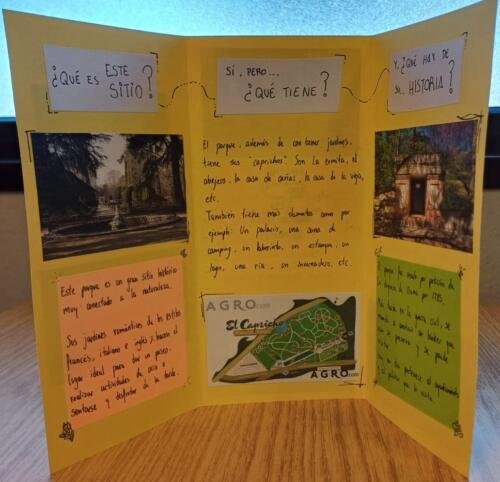 ¿QUÉ ES ESTE
SITIO?
SI, PERO...
¿QUÉ TIENE?
Y, ¿QUÉ HAY DE
SU HISTORIA?
El parque, además de contener jardines,
tiene sus "caprichos". Son la ermita, el
abejero, la casa de cañas, la casa de la vieja,
etc.
También tiene más elementos como por
ejemplo: Un palacio, una zona de
camping, un laberinto, un estanque, un
lago, una ría, un invernadero, etc.
Este parque es un gran sitio histórico
muy conectado a la naturaleza.
Sus jardines románticos de los estilos
francés, italiano e inglés hacen el
lugar ideal para dar un paseo,
realizar actividades de ocio o
sentarse y disfrutar de la tarde.
AGRO.com
El Capricho
AGRO.com
parque fue creado por petición de
la duquesa de Osuna por 1785.
la guerra civil, se
se preserva y se puede
visitar
al ayuntamiento
y el público que lo visita.